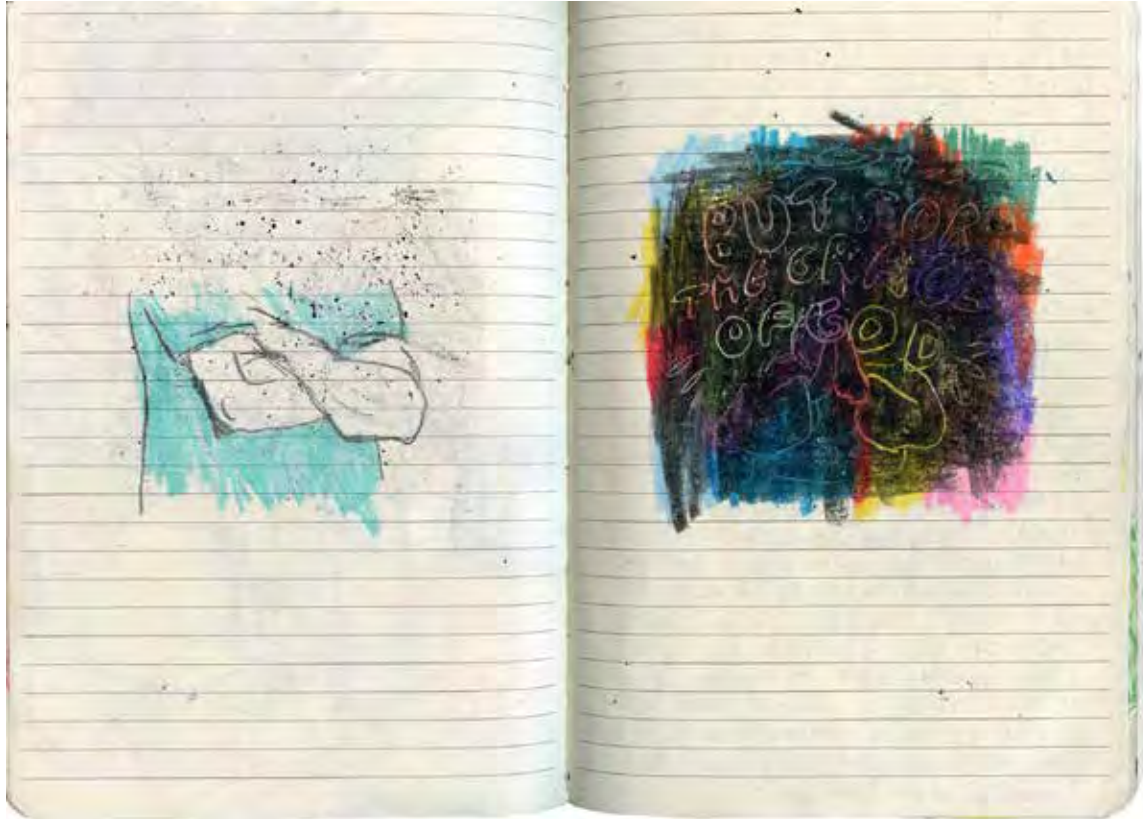 BUT FOR
THE GRACE
OF GOD